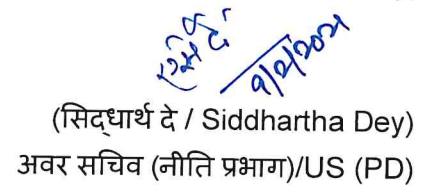 एस दे
9/2/2021
(सिद्धार्थ दे / Siddhartha Dey)
अवर सचिव (नीति प्रभाग)/US (PD)